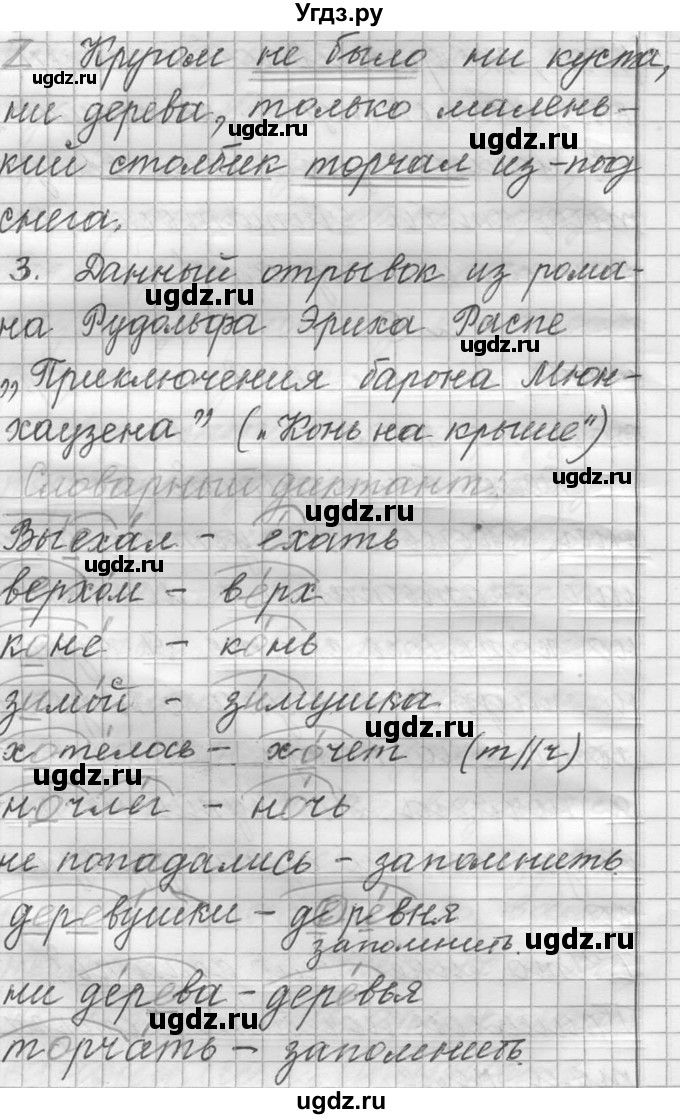 Угдз.ру
2 Кругом не было ни куста,
ugdz.ru
ни дерева, только малень-
ugdz.ru
ugdz.ru
кий столбик торчал из-под
снега.
3. Данный отрывок из рома-
ugdz.ru
на Рудольфа Эриха Распе
ugdz.ru
„Приключения барона Мюн-
хаузена" („Конь на крыше")
ugdz.ru
Словарный диктант.
ugdz.ru
Выехал - ехать
ugdz.ru
верхом - верх
коне - конь
зимой - зимушка
ugdz.ru
хотелось - хочет (т//ч)
ugdz.ru
ночлег - ночь
не попадались - запомнить.
деревушки - деревня
запомнить.
ugdz.ru
ни дерева - деревья
ugdz.ru
торчать - запомнить.
ugdz.ru